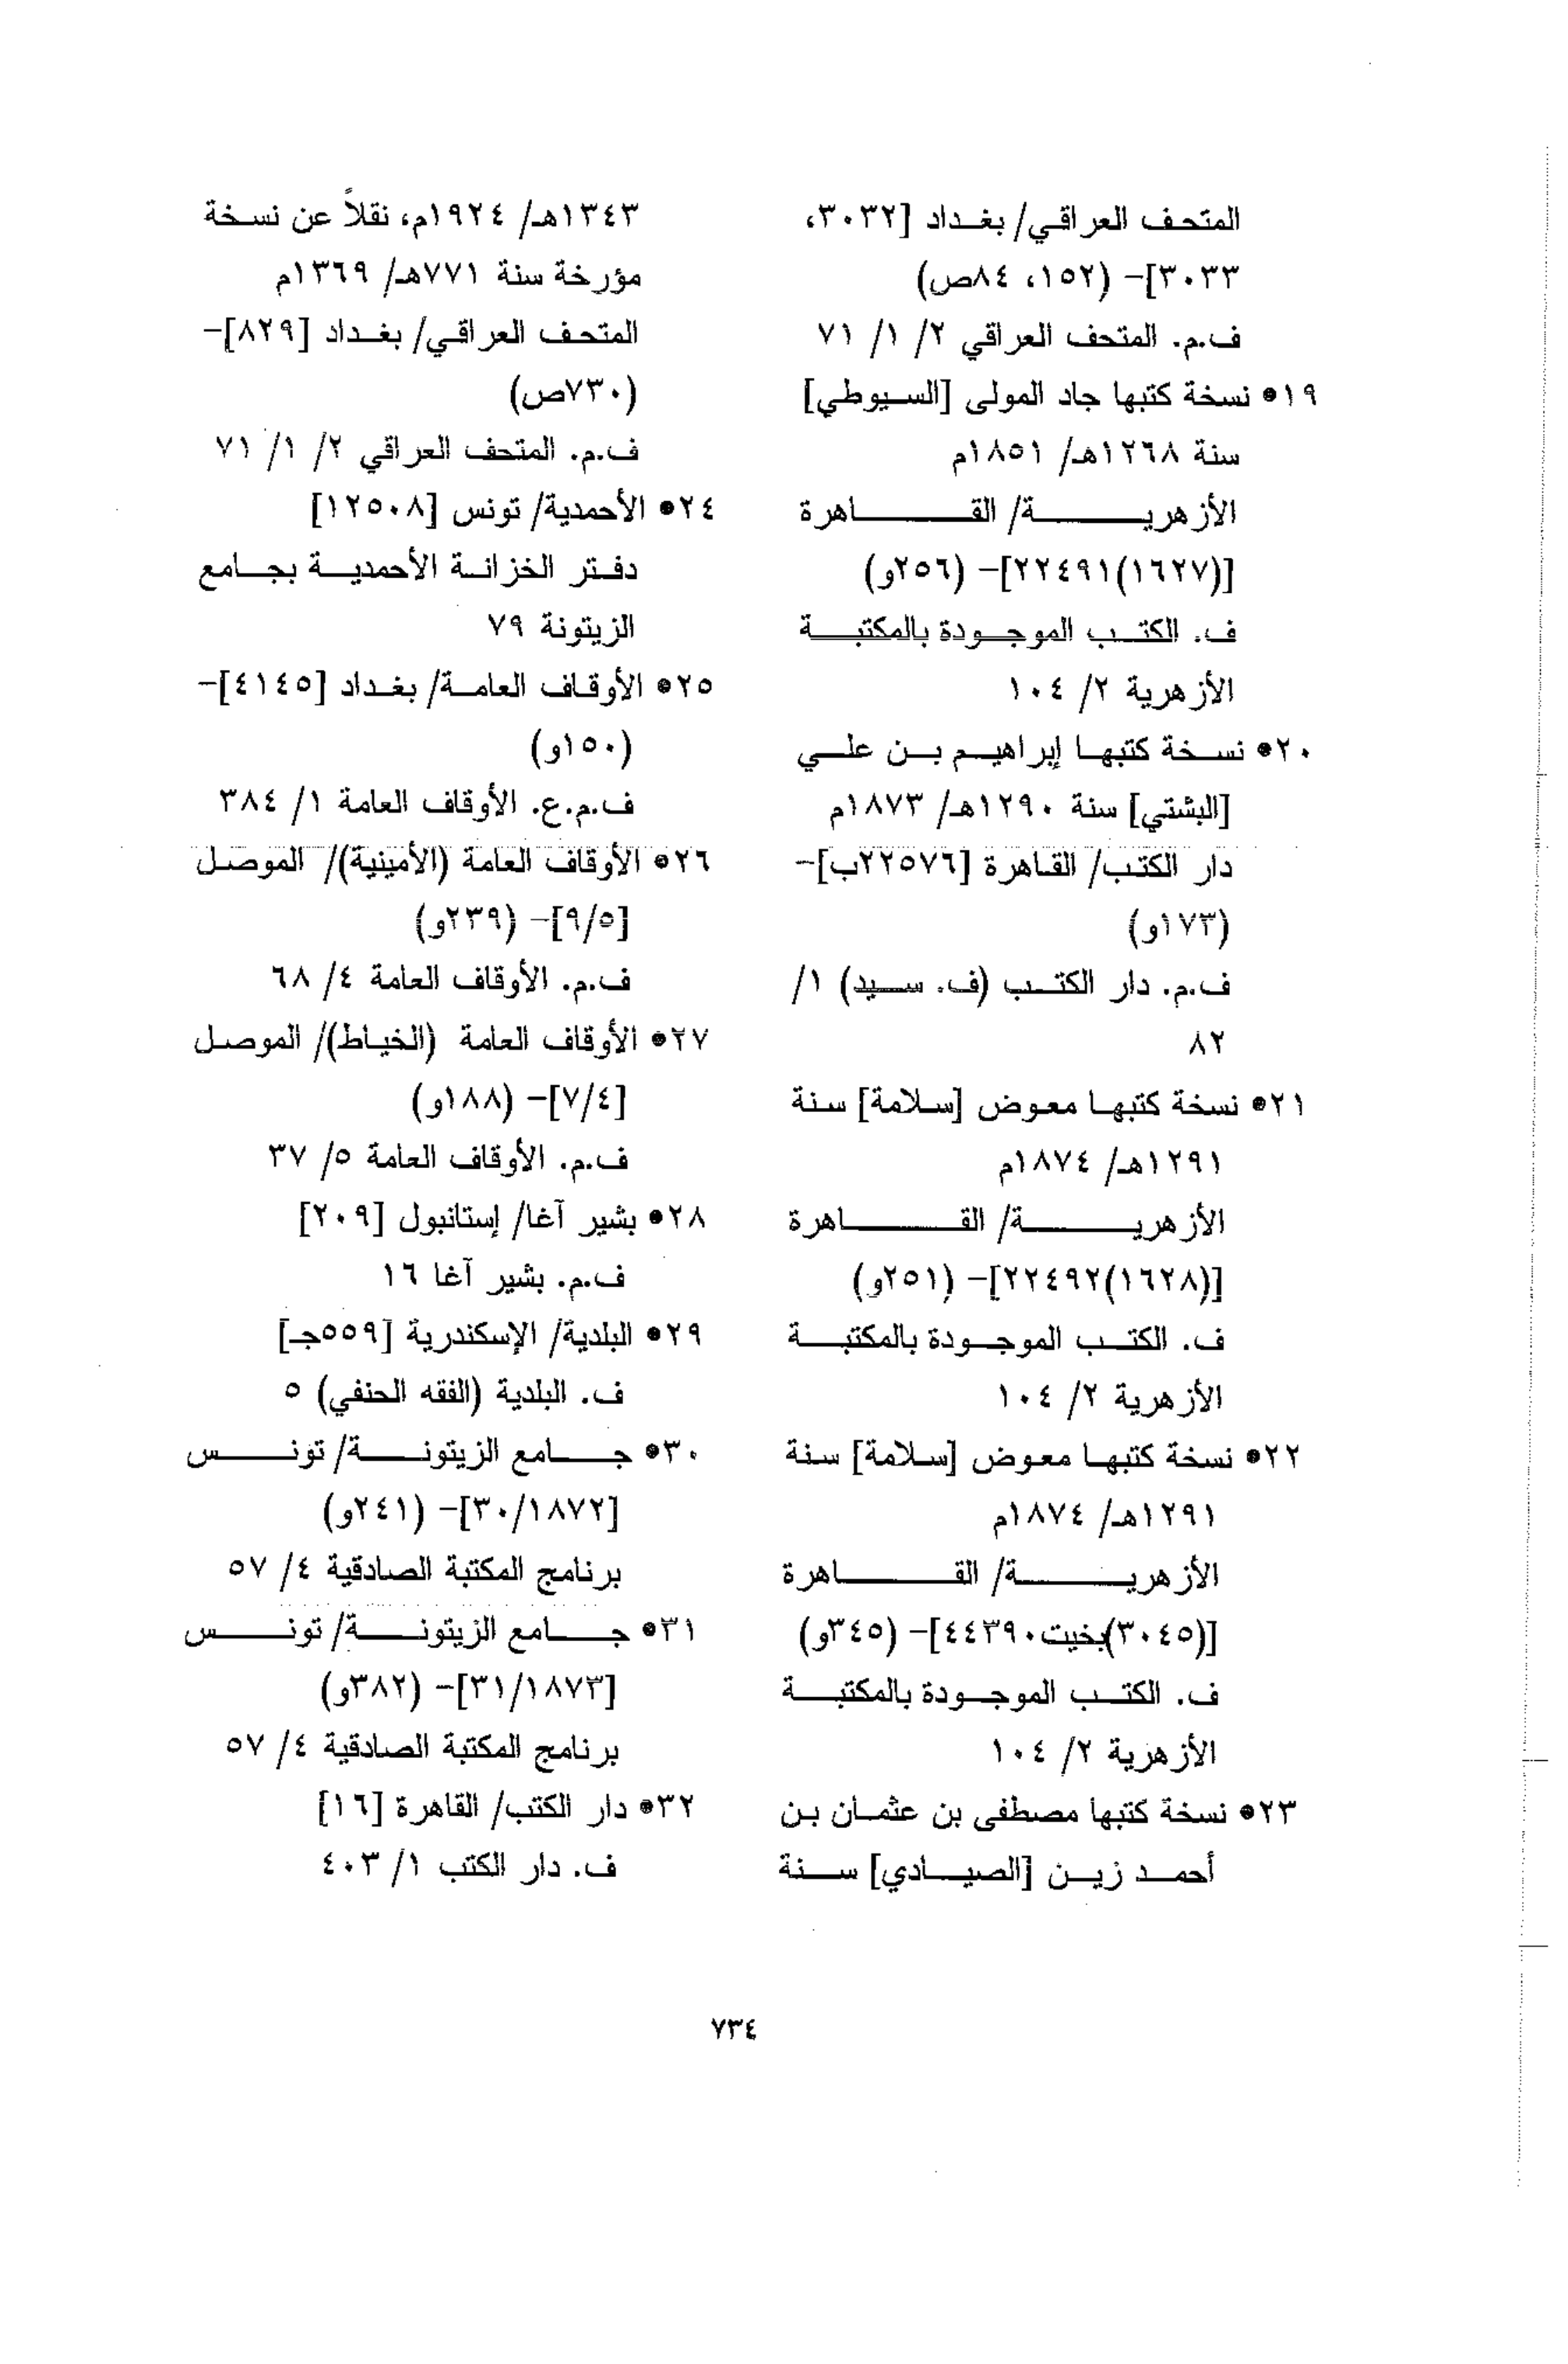 المتحف العراقي/ بغداد [٣٠٣٢،
٣٠٣٣]– (١٥٢، ٨٤ص)
ف.م. المتحف العراقي ٢/ ١/ ٧١
١٩• نسخة كتبها جاد المولى [السيوطي]
سنة ١٢٦٨هـ/ ١٨٥١م
الأزهرية/ القاهرة
[(١٦٢٧)٢٢٤٩١]– (٢٥٦و)
ف. الكتب الموجودة بالمكتبة
الأزهرية ٢/ ١٠٤
٢٠• نسخة كتبها إبراهيم بن علي
[البشتي] سنة ١٢٩٠هـ/ ١٨٧٣م
دار الكتب/ القاهرة [٢٢٥٧٦ب]–
(١٧٣و)
ف.م. دار الكتب (ف. سيد) ١/
٨٢
٢١• نسخة كتبها معوض [سلامة] سنة
١٢٩١هـ/ ١٨٧٤م
الأزهرية/ القاهرة
[(١٦٢٨)٢٢٤٩٢]– (٢٥١و)
ف. الكتب الموجودة بالمكتبة
الأزهرية ٢/ ١٠٤
٢٢• نسخة كتبها معوض [سلامة] سنة
١٢٩١هـ/ ١٨٧٤م
الأزهرية/ القاهرة
[(٣٠٤٥)بخيت٤٤٣٩٠]– (٣٤٥و)
ف. الكتب الموجودة بالمكتبة
الأزهرية ٢/ ١٠٤
٢٣• نسخة كتبها مصطفى بن عثمان بن
أحمد زين [الصيادي] سنة
١٣٤٣هـ/ ١٩٢٤م، نقلاً عن نسخة
مؤرخة سنة ٧٧١هـ/ ١٣٦٩م
المتحف العراقي/ بغداد [٨٢٩]–
(٧٣٠ص)
ف.م. المتحف العراقي ٢/ ١/ ٧١
٢٤• الأحمدية/ تونس [١٢٥٠٨]
دفتر الخزانة الأحمدية بجامع
الزيتونة ٧٩
٢٥• الأوقاف العامة/ بغداد [٤١٤٥]–
(١٥٠و)
ف.م.ع. الأوقاف العامة ١/ ٣٨٤
٢٦• الأوقاف العامة (الأمينية)/ الموصل
[٩/٥]– (٢٣٩و)
ف.م. الأوقاف العامة ٤/ ٦٨
٢٧• الأوقاف العامة (الخياط)/ الموصل
[٧/٤]– (١٨٨و)
ف.م. الأوقاف العامة ٥/ ٣٧
٢٨• بشير آغا/ إستانبول [٢٠٩]
ف.م. بشير آغا ١٦
٢٩• البلدية/ الإسكندرية [٥٥٩جـ]
ف. البلدية (الفقه الحنفي) ٥
٣٠• جامع الزيتونة/ تونس
[٣٠/١٨٧٢]– (٢٤١و)
برنامج المكتبة الصادقية ٤/ ٥٧
٣١• جامع الزيتونة/ تونس
[٣١/١٨٧٣]– (٣٨٢و)
برنامج المكتبة الصادقية ٤/ ٥٧
٣٢• دار الكتب/ القاهرة [١٦]
ف. دار الكتب ١/ ٤٠٣
٧٣٤